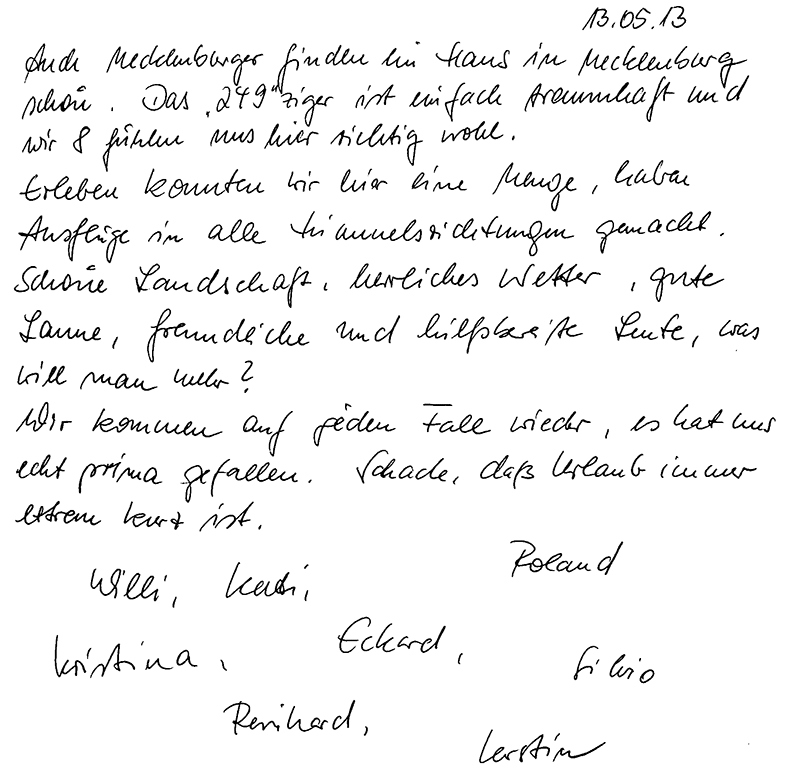 13.05.13
Auch Mecklenburger finden ein Haus in Mecklenburg
schön. Das „249"ziger ist einfach traumhaft und
wir 8 fühlen uns hier richtig wohl.
Erleben konnten wir hier eine Menge, haben
Ausflüge in alle Himmelsrichtungen gemacht.
Schöne Landschaft, herrliches Wetter, gute
Laune, freundliche und hilfsbereite Leute, was
will man mehr?
Wir kommen auf jeden Fall wieder, es hat uns
echt prima gefallen. Schade, daß Urlaub immer
extrem kurz ist.
Roland
Willi, Kati,
Eckard,
Kristina, Silvio
Reinhard,
Kerstin